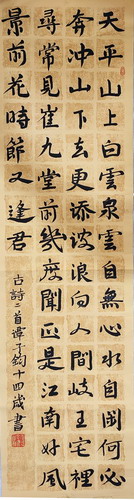 天平山上白雲泉雲自無心水自閑何必
奔冲山下去更添波浪向人間岐王宅裡
尋常見崔九堂前幾度聞正是江南好風
景落花時節又逢君
古詩二首譚子鈞十四歲書